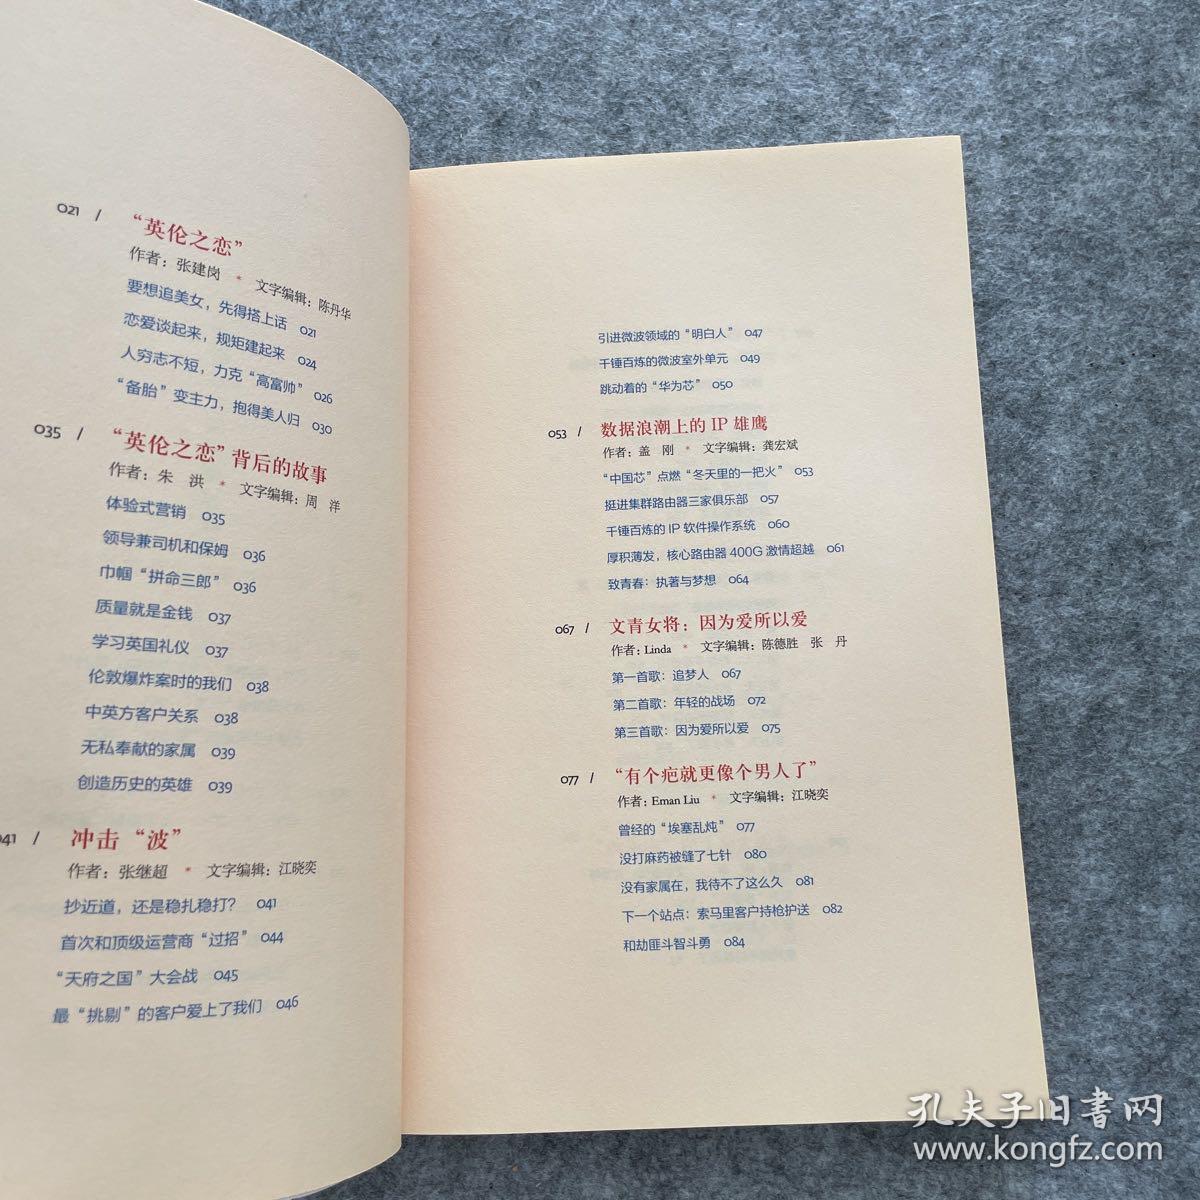 021 / “英伦之恋”
作者：张建岗 * 文字编辑：陈丹华
要想追美女，先得搭上话 021
恋爱谈起来，规矩建起来 024
人穷志不短，力克“高富帅” 026
“备胎”变主力，抱得美人归 030
035 / “英伦之恋”背后的故事
作者：朱 洪 * 文字编辑：周 洋
体验式营销 035
领导兼司机和保姆 036
巾帼“拼命三郎” 036
质量就是金钱 037
学习英国礼仪 037
伦敦爆炸案时的我们 038
中英方客户关系 038
无私奉献的家属 039
创造历史的英雄 039
041 / 冲击“波”
作者：张继超 * 文字编辑：江晓奕
抄近道，还是稳扎稳打？ 041
首次和顶级运营商“过招” 044
“天府之国”大会战 045
最“挑剔”的客户爱上了我们 046
引进微波领域的“明白人” 047
千锤百炼的微波室外单元 049
跳动着的“华为芯” 050
053 / 数据浪潮上的 IP 雄鹰
作者：盖 刚 * 文字编辑：龚宏斌
“中国芯”点燃“冬天里的一把火” 053
挺进集群路由器三家俱乐部 057
千锤百炼的 IP 软件操作系统 060
厚积薄发，核心路由器 400G 激情超越 061
致青春：执著与梦想 064
067 / 文青女将：因为爱所以爱
作者：Linda * 文字编辑：陈德胜 张 丹
第一首歌：追梦人 067
第二首歌：年轻的战场 072
第三首歌：因为爱所以爱 075
077 / “有个疤就更像个男人了”
作者：Eman Liu * 文字编辑：江晓奕
曾经的“埃塞乱炖” 077
没打麻药被缝了七针 080
没有家属在，我待不了这么久 081
下一个站点：索马里客户持枪护送 082
和劫匪斗智斗勇 084
孔夫子旧书网
www.kongfz.com